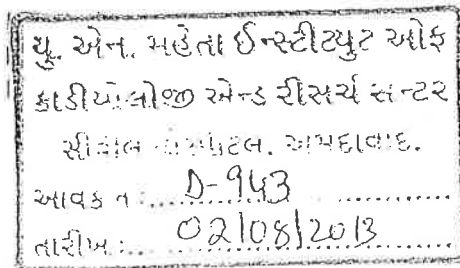 યુ. એન. મહેતા ઈન્સ્ટીટયુટ ઓફ
કાર્ડીયોલોજી એન્ડ રીસર્ચ સેન્ટર
સીવીલ હોસ્પીટલ. અમદાવાદ.
આવક નં : D-943
તારીખ : 02/08/2013